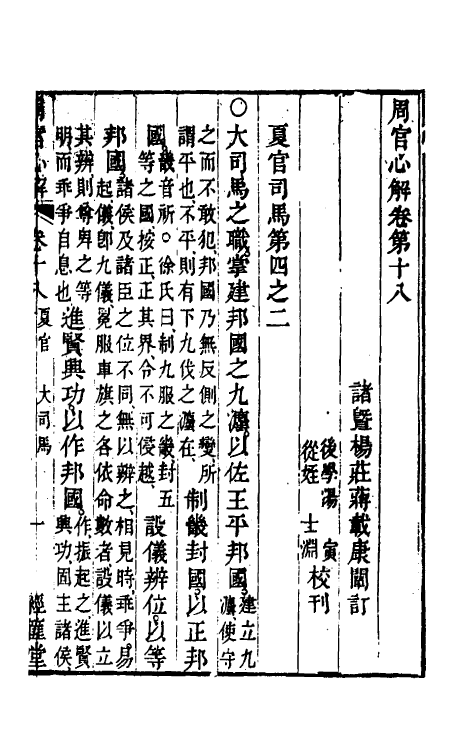 周官心解卷第十八
諸暨楊莊蔣載康闓訂
後學湯寅
從姪士淵
校刊
夏官司馬第四之二
○大司馬之職掌建邦國之九灋以佐王平邦國建立九
灋使守
之而不敢犯邦國乃無反側之變所
謂平也不平則有下九伐之灋在制畿封國以正邦
國畿音祈○徐氏曰制九服之畿封五
等之國校正正其界令不可侵越設儀辨位以等
邦國諸侯及諸臣之位不同無以辨之相見時乖爭易
起儀卽九儀冕服車旗之各依命數者設儀以立
其辨則尊卑之等
明而乖爭自息也進賢興功以作邦國作振起之進賢
興功固主諸侯
周官心解 卷十八 夏官 大司馬 一 經匯堂